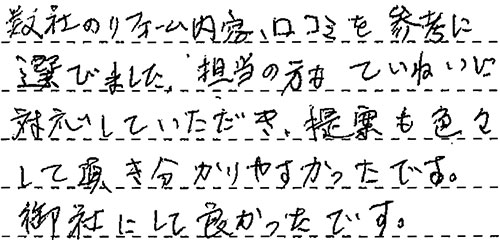 数社のリフォーム内容、口コミを参考に
選びました。担当の方も ていねいに
対応していただき、提案も色々
して頂き分かりやすかったです。
御社にして良かったです。